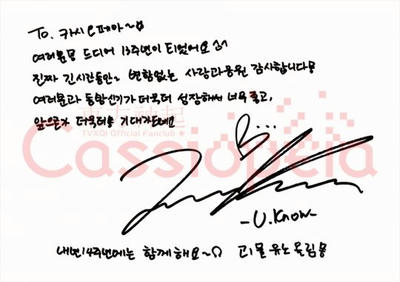 To. 카시오페아~
여러분 드디어 13주년이 되었어요
진짜 긴시간동안 변함없는 사랑과응원 감사합니다
여러분과 동방신기가 더욱더 성장해서 너무 좋고,
앞으로가 더욱더 기대가되네요
TVXQ! Official Fanclub
Cassiopeia
-U.Know-
내년14주년에는 함께해요~
유노윤호